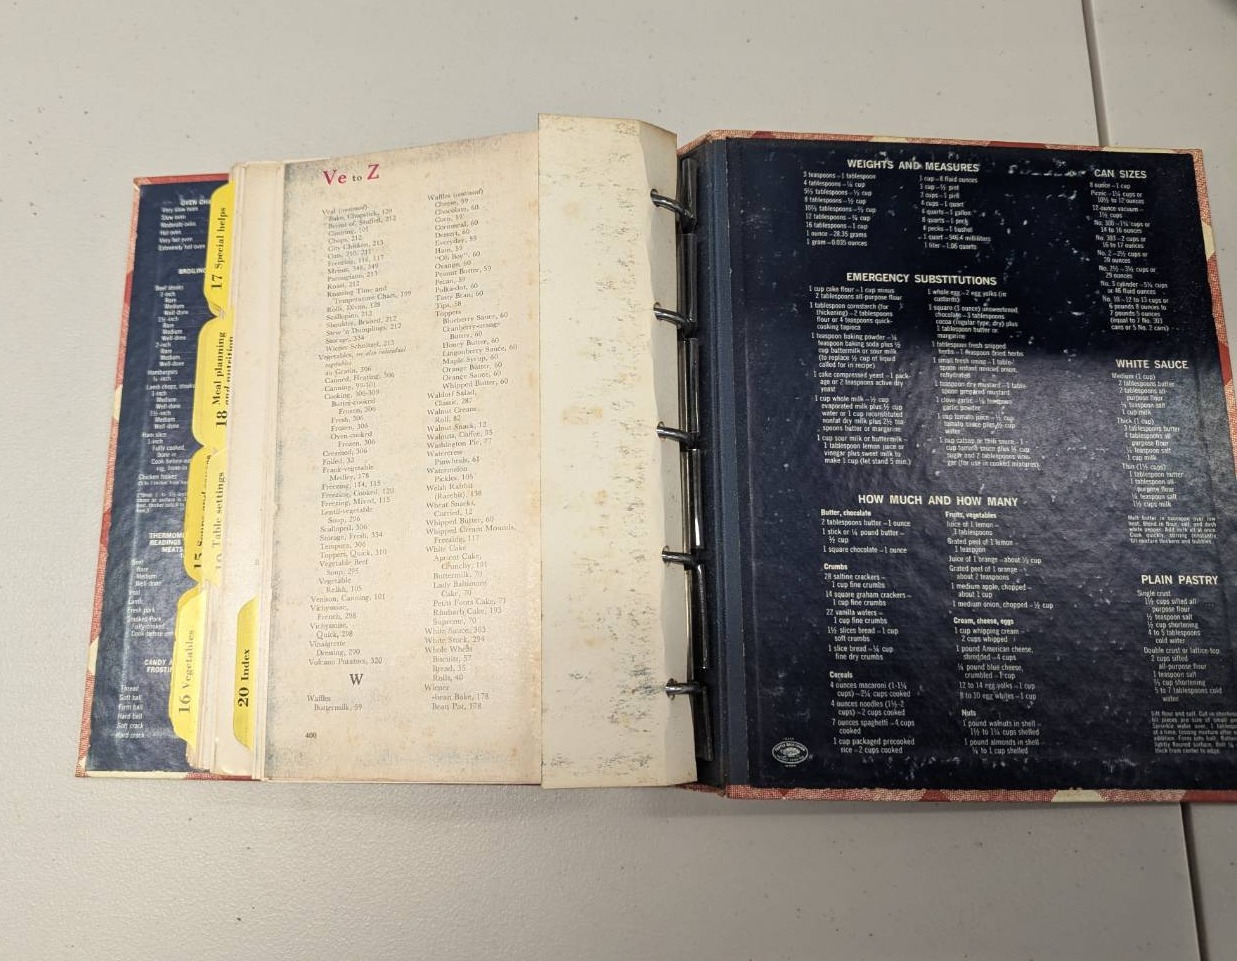 OVEN CHA
Very slow oven
Slow oven
Moderate oven
Hot oven
Very hot oven
Extremely hot oven
BROILING
Beef steaks
1-inch
Rare
Medium
Well-done
1½-inch
Rare
Medium
Well-done
2-inch
Rare
Medium
Well-done
Hamburgers
Lamb chops, steaks
1-inch
Medium
Well-done
1½-inch
Medium
Well-done
Ham slice
1-inch
Fully cooked
THERMOM
READINGS
MEATS
Rare
Medium
Well-done
Veal
Lamb
Fresh pork
Smoked Pork
Fully cooked
Cook before
CANDY A
FROSTI
Thread
Soft ball
Firm ball
Hard ball
Soft crack
Hard crack
17 Special helps
18 Meal planning
and nutrition
15
Table settings
16 Vegetables
20 Index
Ve to Z
Veal (continued)
Bake, Chopstick, 120
Breast of, Stuffed, 212
Canning, 101
Chops, 212
City Chicken, 213
Freezing, 116, 117
Parmigiano, 213
Roast, 212
Roasting Time and
Temperature Chart, 199
Rolls, Divan, 128
Scallopini, 213
Shoulder, Braised, 212
Stew 'n Dumplings, 212
Storage, 334
Wiener Schnitzel, 213
Vegetables, see also individual
vegetables
au Gratin, 306
Canned, Heating, 306
Canning, 99-101
Cooking, 306-309
Butter-cooked
Frozen, 306
Fresh, 306
Frozen, 306
Oven-cooked
Frozen, 306
Creamed, 306
Foiled, 32
Frank-vegetable
Medley, 178
Freezing, 114, 115
Freezing, Cooked, 120
Freezing, Mixed, 115
Lentil-vegetable
Soup, 296
Scalloped, 306
Storage, Fresh, 334
Tempura, 306
Toppers, Quick, 310
Vegetable Beef
Soup, 295
Vegetable
Relish, 105
Venison, Canning, 101
Vichyssoise,
French, 298
Vichyssoise,
Quick, 298
Vinaigrette
Dressing, 290
Volcano Potatoes, 320
W
Waffles
Buttermilk, 59
400
Waffles (continued)
Cheese, 59
Chocolate, 60
Corn, 59
Cornmeal, 60
Dessert, 60
Everyday, 59
Ham, 59
"Oh Boy", 60
Orange, 60
Peanut Butter, 59
Pecan, 59
Polka-dot, 60
Tasty Bran, 60
Tips, 58
Toppers
Blueberry Sauce, 60
Cranberry-orange
Butter, 60
Honey Butter, 60
Lingonberry Sauce, 60
Maple Syrup, 60
Orange Butter, 60
Orange Sauce, 60
Whipped Butter, 60
Waldorf Salad,
Classic, 287
Walnut Cream
Roll, 82
Walnut Snack, 12
Walnuts, Coffee, 95
Washington Pie, 77
Watercress
Pinwheels, 61
Watermelon
Pickles, 105
Welsh Rabbit
(Rarebit), 138
Wheat Snacks,
Curried, 12
Whipped Butter, 60
Whipped Cream Mounds,
Freezing, 117
White Cake
Apricot Cake,
Crunchy, 191
Buttermilk, 70
Lady Baltimore
Cake, 70
Petits Fours Cake, 71
Rhubarb Cake, 193
Supreme, 70
White Sauce, 303
White Stock, 294
Whole Wheat
Biscuits, 57
Bread, 35
Rolls, 40
Wiener
-bean Bake, 178
Bean Pot, 178
WEIGHTS AND MEASURES
3 teaspoons – 1 tablespoon
4 tablespoons – ¼ cup
5⅓ tablespoons – ⅓ cup
8 tablespoons – ½ cup
10⅔ tablespoons – ⅔ cup
12 tablespoons – ¾ cup
16 tablespoons – 1 cup
1 ounce – 28.35 grams
1 gram – 0.035 ounces
1 cup – 8 fluid ounces
1 cup – ½ pint
2 cups – 1 pint
4 cups – 1 quart
4 quarts – 1 gallon
8 quarts – 1 peck
4 pecks – 1 bushel
1 quart – 946.4 milliliters
1 liter – 1.06 quarts
EMERGENCY SUBSTITUTIONS
1 cup cake flour – 1 cup minus
2 tablespoons all-purpose flour
1 tablespoon cornstarch (for
thickening) – 2 tablespoons
flour or 4 teaspoons quick-
cooking tapioca
1 teaspoon baking powder – ¼
teaspoon baking soda plus ½
cup buttermilk or sour milk
(to replace ½ cup of liquid
called for in recipe)
1 cake compressed yeast – 1 pack-
age or 2 teaspoons active dry
yeast
1 cup whole milk – ½ cup
evaporated milk plus ½ cup
water or 1 cup reconstituted
nonfat dry milk plus 2½ tea
spoons butter or margarine
1 cup sour milk or buttermilk –
1 tablespoon lemon juice or
vinegar plus sweet milk to
make 1 cup (let stand 5 min.)
1 whole egg – 2 egg yolks (in
custards)
1 square (1 ounce) unsweetened
chocolate – 3 tablespoons
cocoa (regular type, dry) plus
1 tablespoon butter or
margarine
1 tablespoon fresh snipped
herbs – 1 teaspoon dried herbs
1 small fresh onion – 1 table-
spoon instant minced onion,
rehydrated
1 teaspoon dry mustard – 1 table-
spoon prepared mustard
1 clove garlic – ⅛ teaspoon
garlic powder
1 cup tomato juice – ½ cup
tomato sauce plus ½ cup
water
1 cup catsup or chili sauce – 1
cup tomato sauce plus ½ cup
sugar and 2 tablespoons vine-
gar (for use in cooked mixtures)
HOW MUCH AND HOW MANY
Butter, chocolate
2 tablespoons butter – 1 ounce
1 stick or ¼ pound butter –
½ cup
1 square chocolate – 1 ounce
Crumbs
28 saltine crackers –
1 cup fine crumbs
14 square graham crackers –
1 cup fine crumbs
22 vanilla wafers –
1 cup fine crumbs
1½ slices bread – 1 cup
soft crumbs
1 slice bread – ¼ cup
fine dry crumbs
Cereals
4 ounces macaroni (1-1¼
cups) – 2¼ cups cooked
4 ounces noodles (1½-2
cups) – 2 cups cooked
7 ounces spaghetti – 4 cups
cooked
1 cup packaged precooked
rice – 2 cups cooked
Fruits, vegetables
Juice of 1 lemon –
3 tablespoons
Grated peel of 1 lemon –
1 teaspoon
Juice of 1 orange – about ⅓ cup
Grated peel of 1 orange –
about 2 teaspoons
1 medium apple, chopped –
about 1 cup
1 medium onion, chopped – ½ cup
Cream, cheese, eggs
1 cup whipping cream –
2 cups whipped
1 pound American cheese,
shredded – 4 cups
¼ pound blue cheese,
crumbled – 1 cup
12 to 14 egg yolks – 1 cup
8 to 10 egg whites – 1 cup
Nuts
1 pound walnuts in shell –
1½ to 1¾ cups shelled
1 pound almonds in shell –
¾ to 1 cup shelled
CAN SIZES
8 ounce – 1 cup
Picnic – 1¼ cups or
10½ to 12 ounces
12-ounce vacuum –
1½ cups
No. 300 – 1¾ cups or
14 to 16 ounces
No. 303 – 2 cups or
16 to 17 ounces
No. 2 – 2½ cups or
20 ounces
No. 2½ – 3½ cups or
29 ounces
No. 3 cylinder – 5¾ cups
or 46 fluid ounces
No. 10 – 12 to 13 cups or
6 pounds 8 ounces to
7 pounds 5 ounces
(equal to 7 No. 303
cans or 5 No. 2 cans)
WHITE SAUCE
Medium (1 cup)
2 tablespoons butter
2 tablespoons all-
purpose flour
¼ teaspoon salt
1 cup milk
Thick (1 cup)
3 tablespoons butter
4 tablespoons all-
purpose flour
¼ teaspoon salt
1 cup milk
Thin (1½ cups)
1 tablespoon butter
1 tablespoon all-
purpose flour
¼ teaspoon salt
1½ cups milk
Melt butter in saucepan over low
heat. Blend in flour, salt, and dash
white pepper. Add milk all at once.
Cook quickly, stirring constantly,
till mixture thickens and bubbles.
PLAIN PASTRY
Single crust
1½ cups sifted all-
purpose flour
½ teaspoon salt
½ cup shortening
4 to 5 tablespoons
cold water
Double crust or lattice-top
2 cups sifted
all-purpose flour
1 teaspoon salt
⅔ cup shortening
5 to 7 tablespoons cold
water